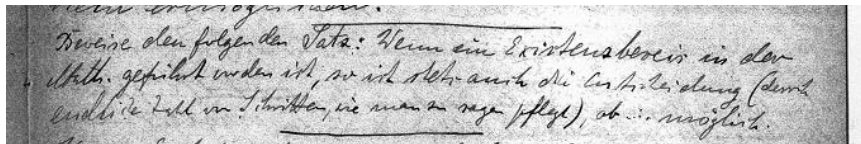 Beweise den folgenden Satz: Wenn ein Existenzbeweis in der
Math. geführt worden ist, so ist stets auch die Entscheidung (durch
endliche Zahl von Schritten, wie man zu sagen pflegt), ob ... möglich.